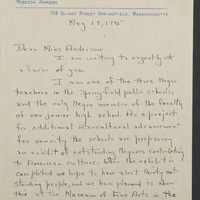 REBECCA JOHNSON
SPRINGFIELD, MASSACHUSETTS
May 19, 19
Dear Miss Anderson:
I am writing to urgently ask
a favor of you.
I am one of the three Negro
teachers in the Springfield public schools,
and the only Negro member of the faculty
of our junior high school. As a project
for additional intercultural advancement
for security the schools are preparing
an exhibit of outstanding Negroes contributing
to American Culture. When the exhibit is
completed we hope to have about thirty out-
standing people, and we have planned to show
this at the Museum of Fine Arts in the